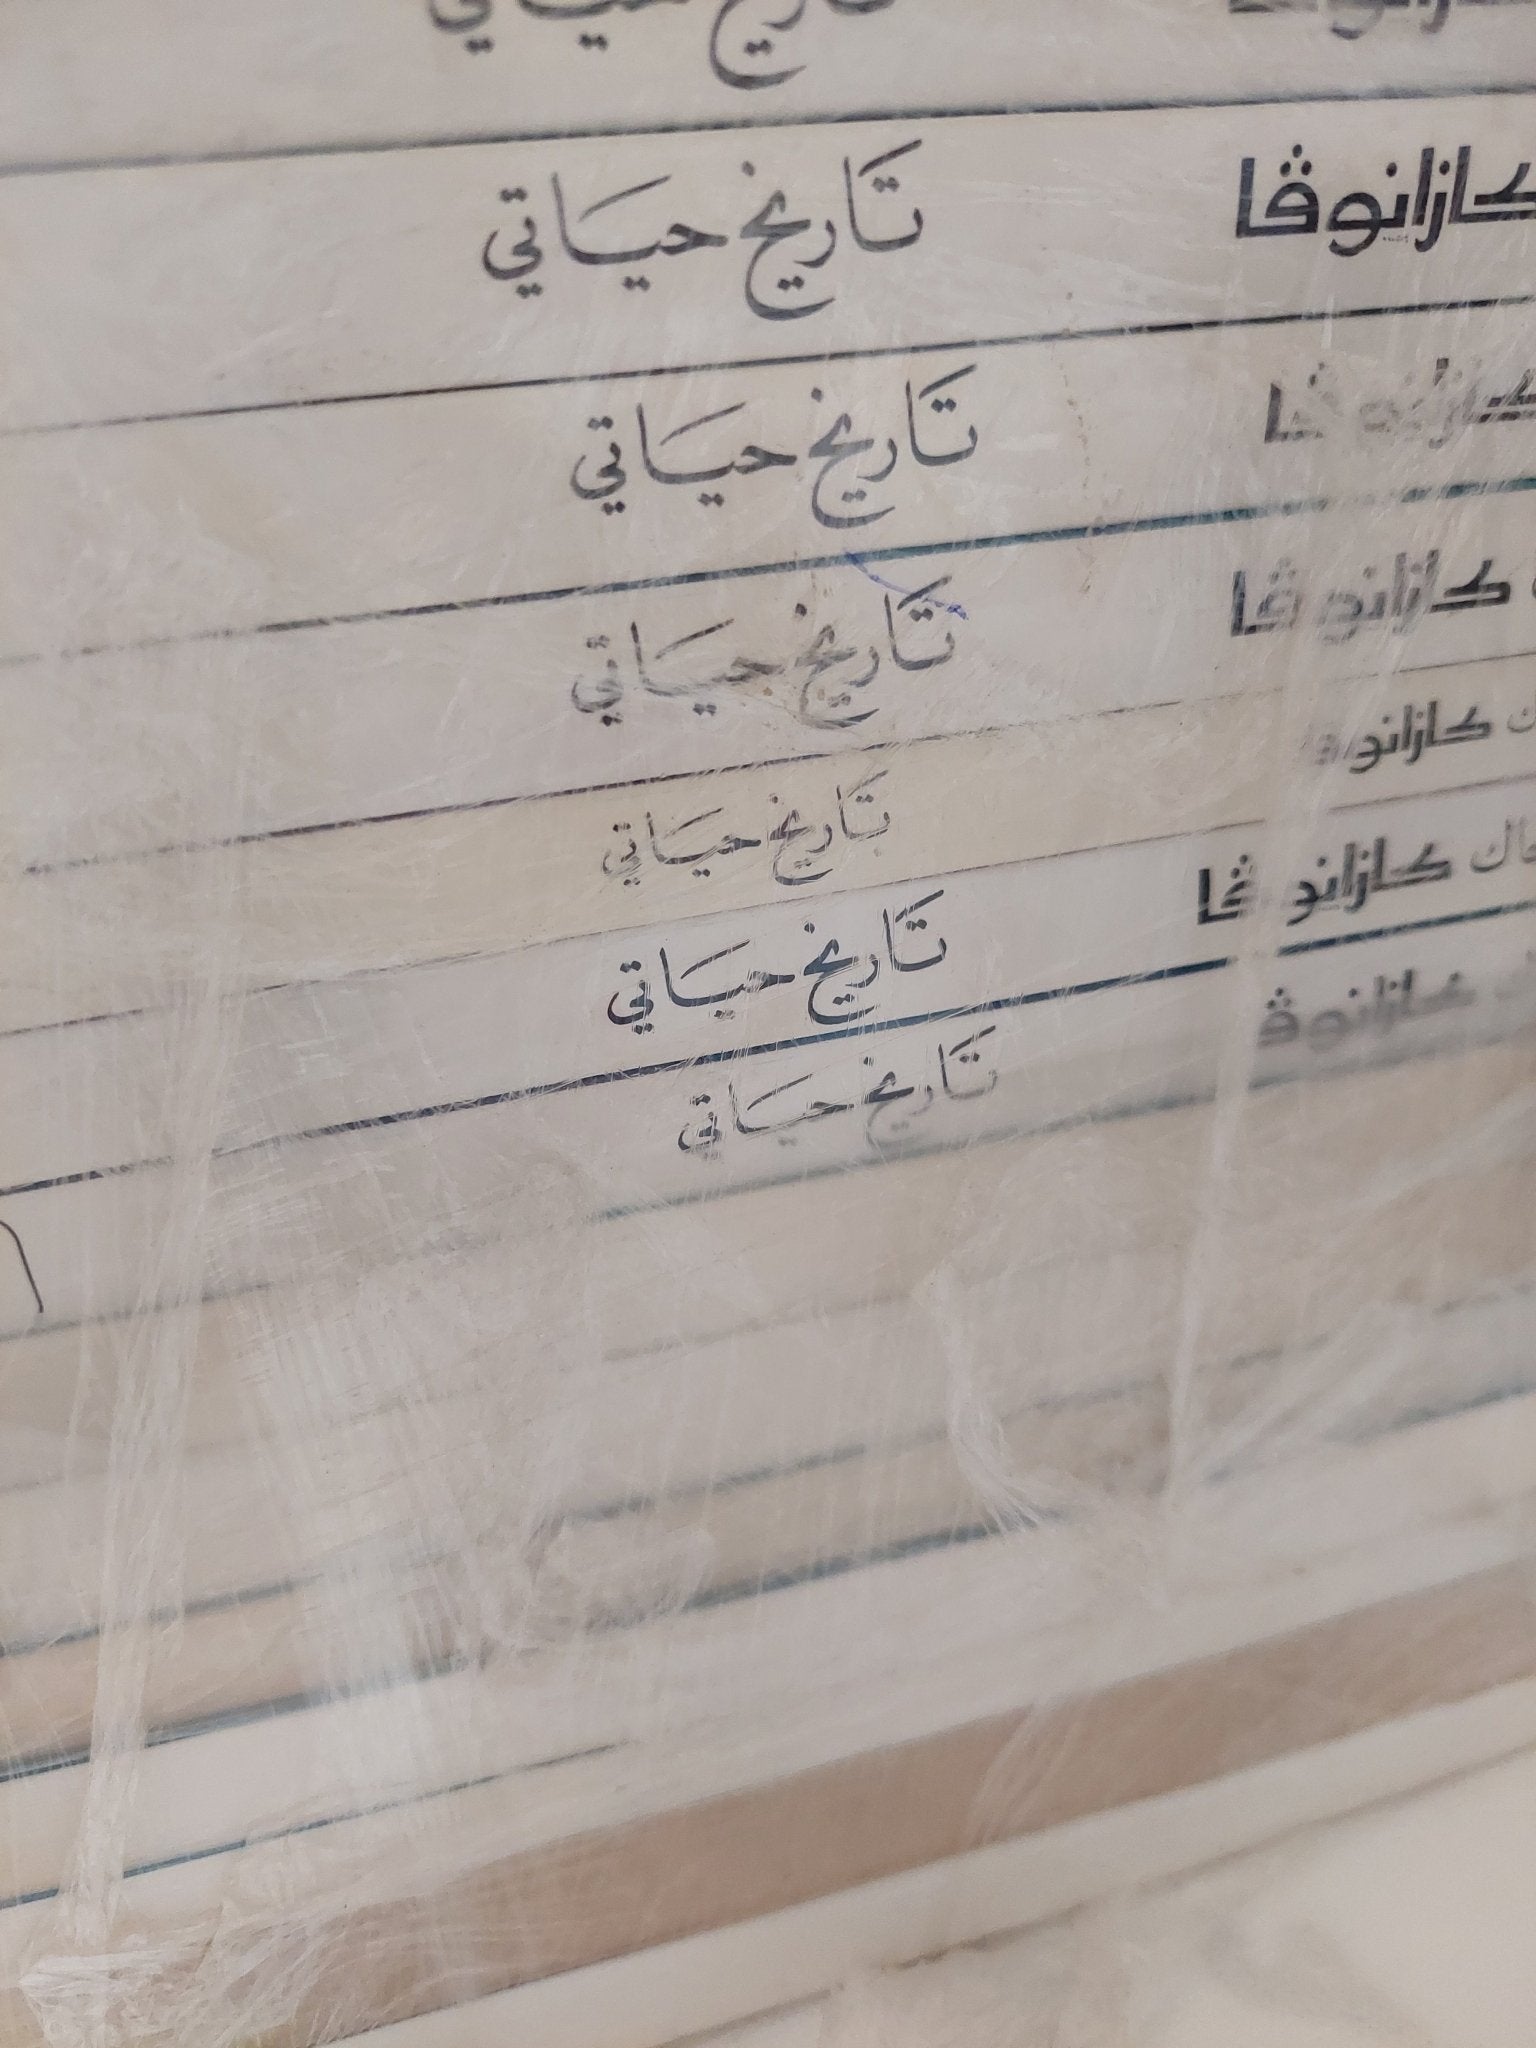 تاريخ حياتي
كازانوڤا تاريخ حياتي
كازانوڤا تاريخ حياتي
كازانوڤا تاريخ حياتي
كازانوڤا تاريخ حياتي
جاك كازانوڤا تاريخ حياتي
كازانوڤا تاريخ حياتي